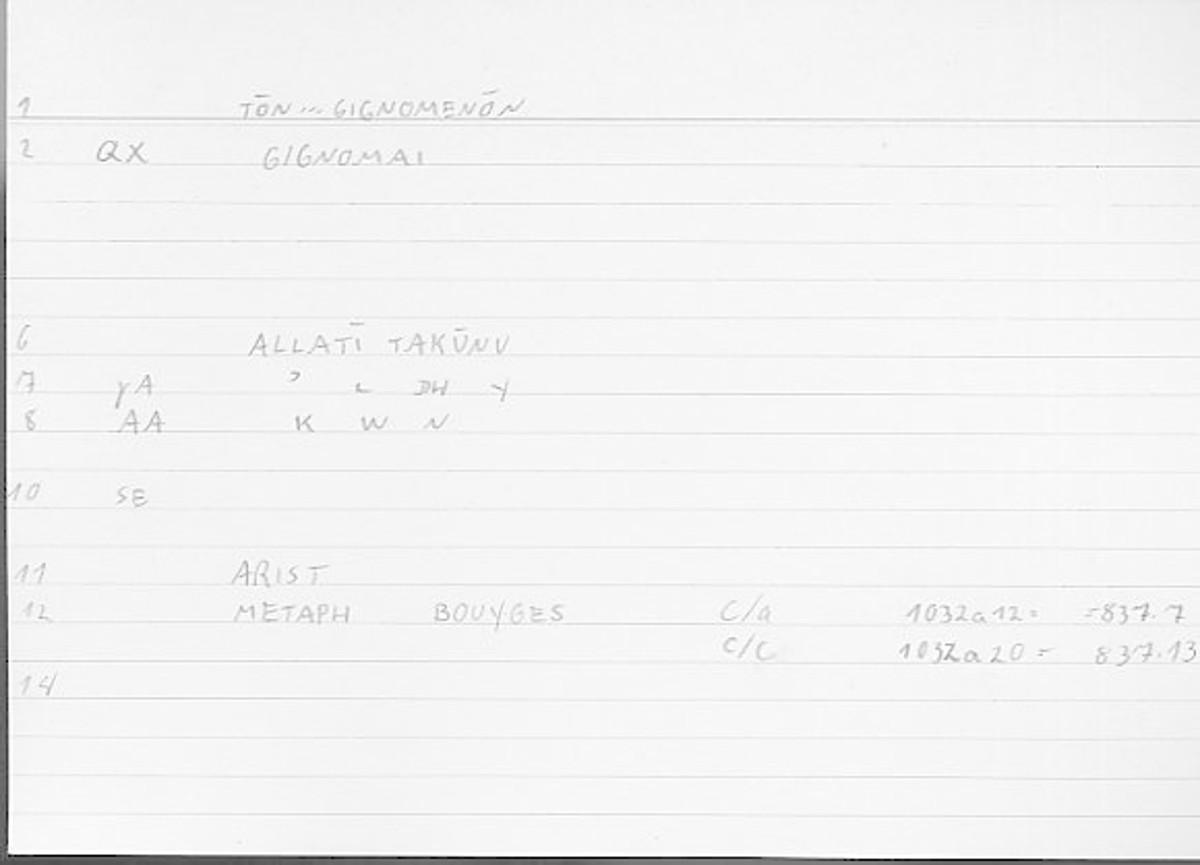 1 TŌN ... GIGNOMENŌN
2 QX GIGNOMAI
6 ALLATĪ TAKŪNU
7 γA ʾ L DH Y
8 AA K W N
10 SE
11 ARIST
12 METAPH BOUYGES C/a 1032a12= =837.7
C/C 1032a20 = 837.13
14